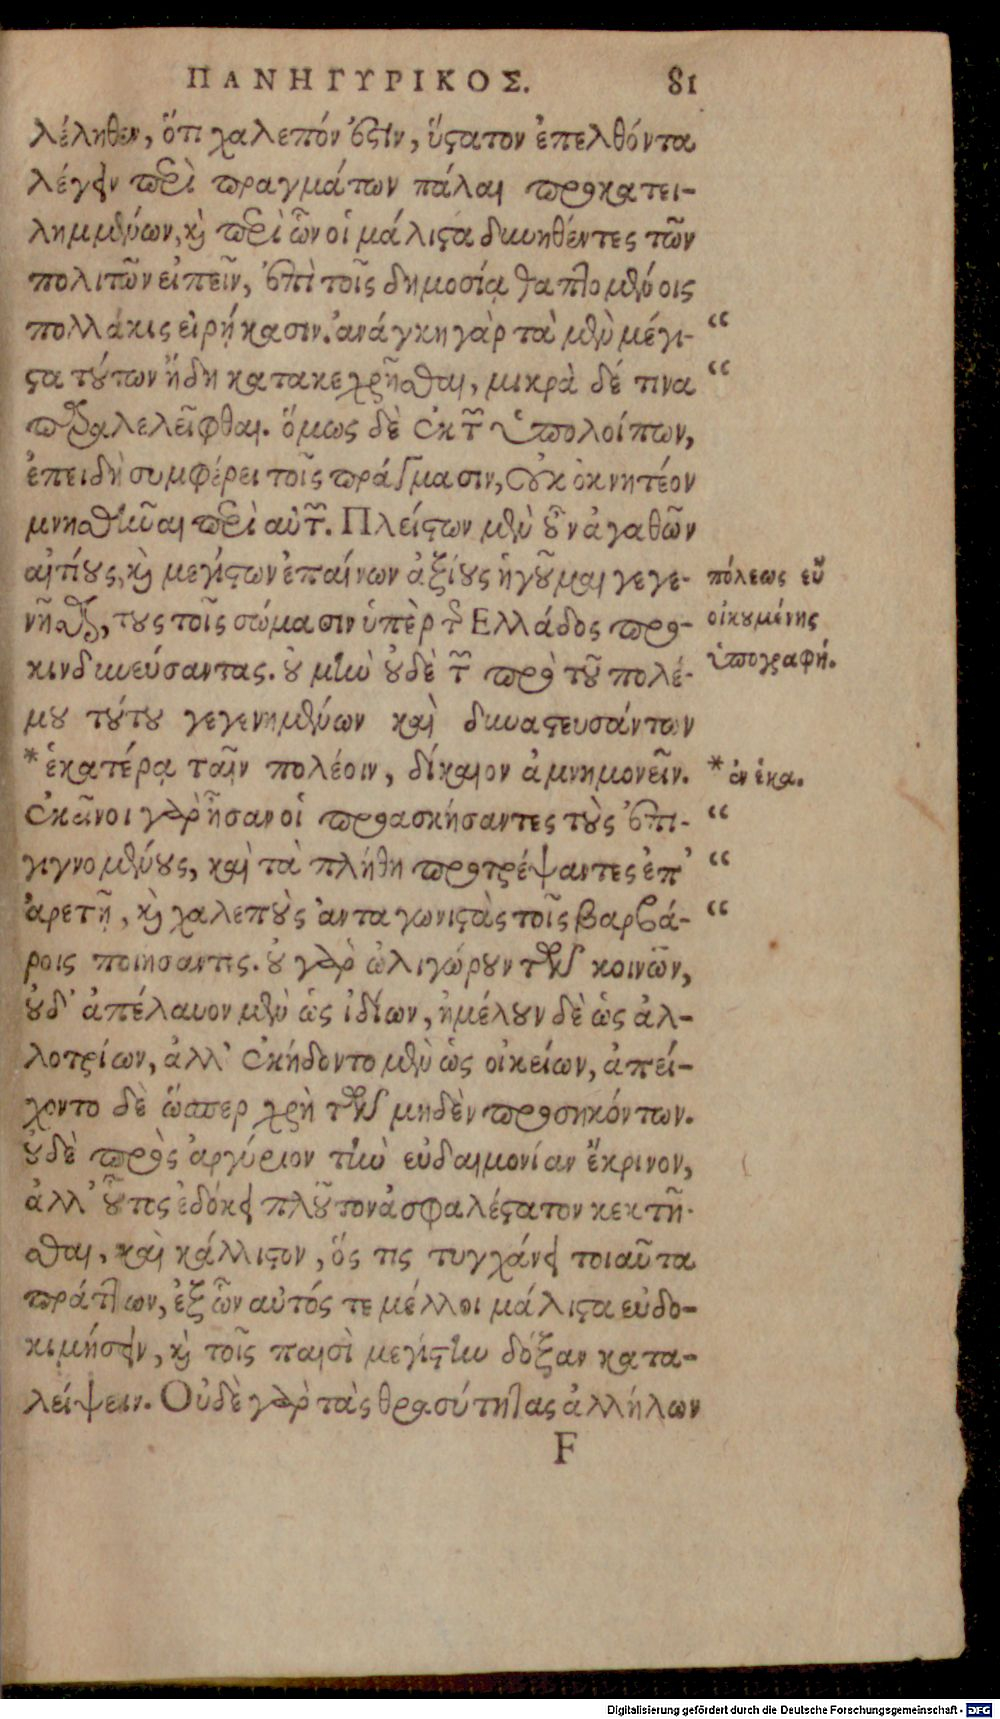 ΠΑΝΗΓΥΡΙΚΟΣ. 81
λέληθεν, ὅτι χαλεπόν ἐστιν, ὕστατον ἐπελθόντα
λέγειν περὶ πραγμάτων πάλαι προκατει-
λημμένων, καὶ περὶ ὧν οἱ μάλιστα δυνηθέντες τῶν
πολιτῶν εἰπεῖν, ἐπὶ τοῖς δημοσίᾳ θαπτομένοις
πολλάκις εἰρήκασιν. ἀνάγκη γὰρ τὰ μὲν μέγι- “
στα τούτων ἤδη κατακεχρῆσθαι, μικρὰ δέ τινα “
παραλελεῖφθαι. ὅμως δὲ ἐκ τῶν ὑπολοίπων,
ἐπειδὴ συμφέρει τοῖς πράγμασιν, οὐκ ὀκνητέον
μνησθῆναι περὶ αὐτῶν. Πλείστων μὲν οὖν ἀγαθῶν
αἰτίους, καὶ μεγίστων ἐπαίνων ἀξίους ἡγοῦμαι γεγε-
νῆσθαι, τοὺς τοῖς σώμασιν ὑπὲρ τῆς Ἑλλάδος προ-
κινδυνεύσαντας. οὐ μὴν οὐδὲ τῶν πρὸ τοῦ πολέ-
μου τούτου γεγενημένων καὶ δυναστευσάντων
*ἑκατέρᾳ ταῖν πολέοιν, δίκαιον ἀμνημονεῖν.
ἐκεῖνοι γὰρ ἦσαν οἱ προασκήσαντες τοὺς ἐπι- “
γιγνομένους, καὶ τὰ πλήθη προτρέψαντες ἐπ’ “
ἀρετῇ, καὶ χαλεποὺς ἀνταγωνιστὰς τοῖς βαρβά- “
ροις ποιήσαντες. οὐ γὰρ ὠλιγώρουν τῶν κοινῶν,
οὐδ’ ἀπέλαυον μὲν ὡς ἰδίων, ἠμέλουν δὲ ὡς ἀλ-
λοτρίων, ἀλλ’ ἐκήδοντο μὲν ὡς οἰκείων, ἀπεί-
χοντο δὲ ὥσπερ χρὴ τῶν μηδὲν προσηκόντων.
οὐδὲ πρὸς ἀργύριον τὴν εὐδαιμονίαν ἔκρινον,
ἀλλ’ οὗτος ἐδόκει πλοῦτον ἀσφαλέστατον κεκτῆ-
σθαι, καὶ κάλλιστον, ὅς τις τυγχάνει τοιαῦτα
πράττων, ἐξ ὧν αὐτός τε μέλλοι μάλιστα εὐδο-
κιμήσειν, καὶ τοῖς παισὶ μεγίστην δόξαν κατα-
λείψειν. Οὐδὲ γὰρ τὰς θρασύτητας ἀλλήλων
F
πόλεως εὖ
οἰκουμένης
ὑπογραφή.
*ἐν ἑκα.
Digitalisierung gefördert durch die Deutsche Forschungsgemeinschaft - DFG